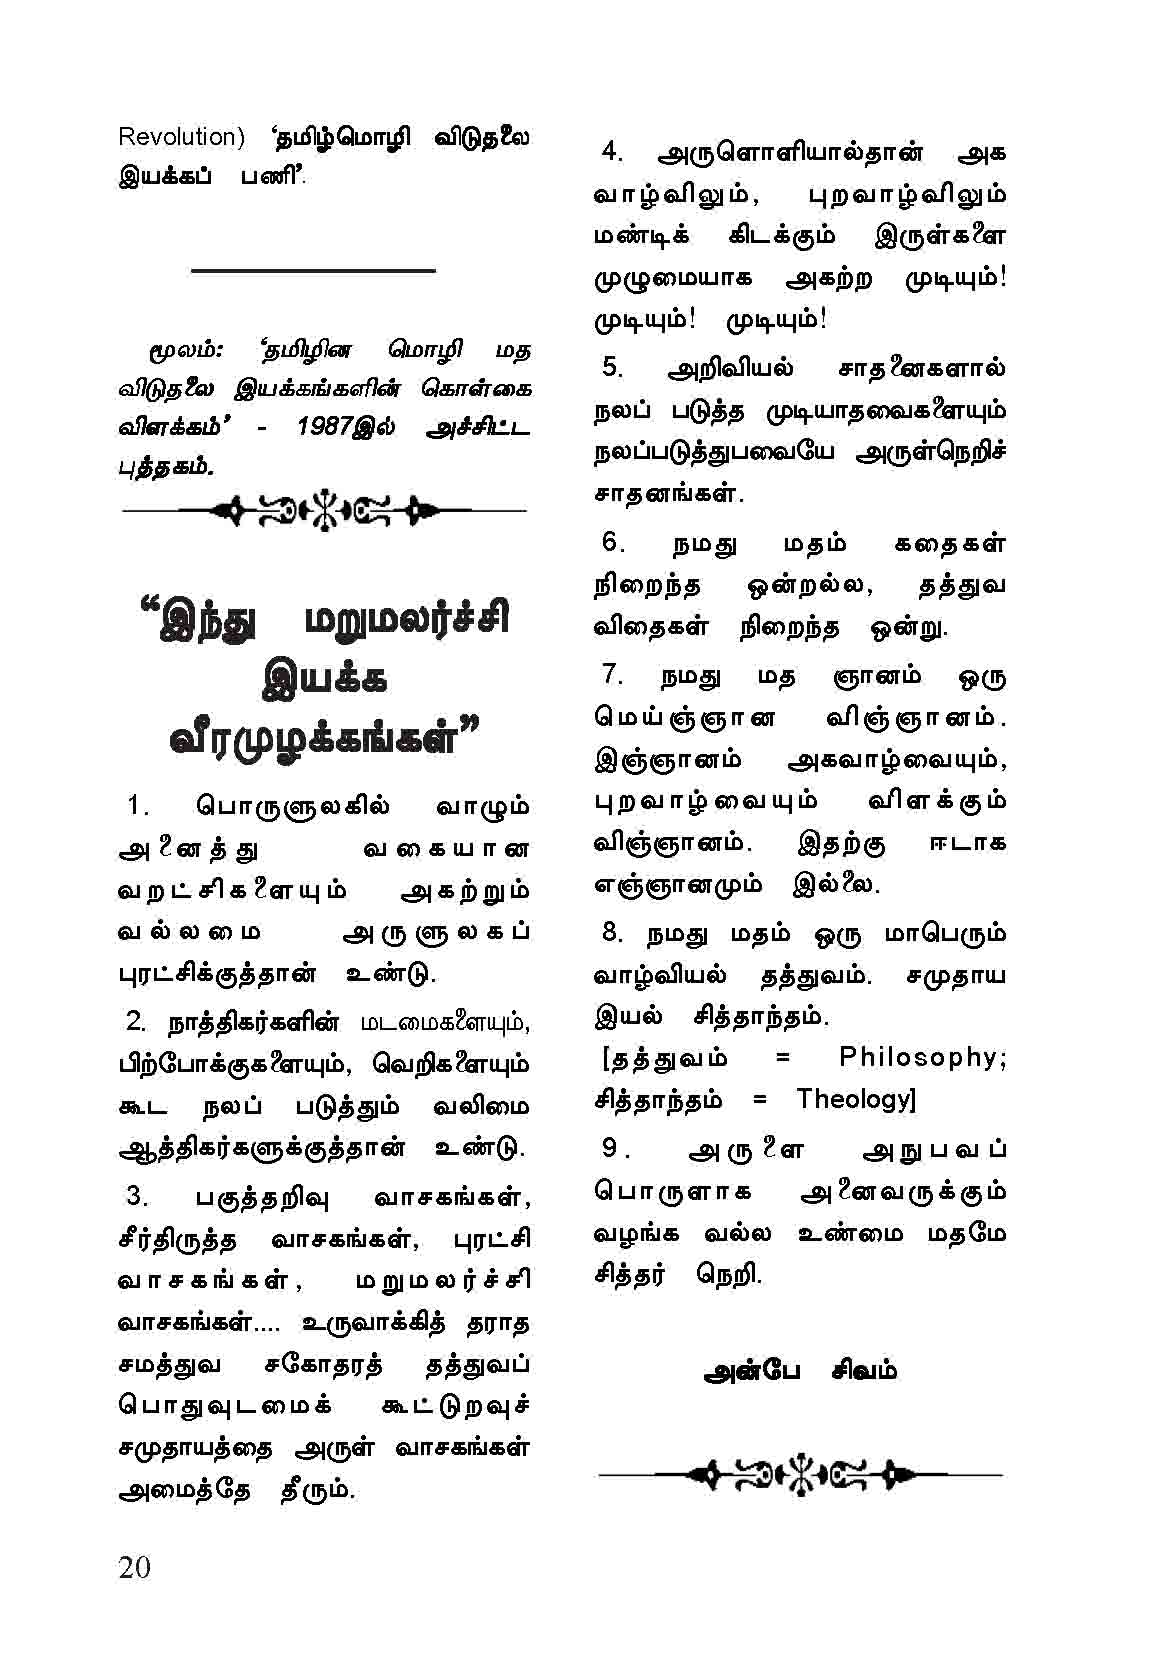 Revolution) ‘தமிழ்மொழி விடுதலை
இயக்கப் பணி’.
மூலம்: ‘தமிழின மொழி மத
விடுதலை இயக்கங்களின் கொள்கை
விளக்கம்’ - 1987இல் அச்சிட்ட
புத்தகம்.
“இந்து மறுமலர்ச்சி
இயக்க
வீரமுழக்கங்கள்”
1. பொருளுலகில் வாழும்
அனைத்து வகையான
வறட்சிகளையும் அகற்றும்
வல்லமை அருளுலகப்
புரட்சிக்குத்தான் உண்டு.
2. நாத்திகர்களின் மடமைகளையும்,
பிற்போக்குகளையும், வெறிகளையும்
கூட நலப் படுத்தும் வலிமை
ஆத்திகர்களுக்குத்தான் உண்டு.
3. பகுத்தறிவு வாசகங்கள்,
சீர்திருத்த வாசகங்கள், புரட்சி
வாசகங்கள், மறுமலர்ச்சி
வாசகங்கள்.... உருவாக்கித் தராத
சமத்துவ சகோதரத் தத்துவப்
பொதுவுடமைக் கூட்டுறவுச்
சமுதாயத்தை அருள் வாசகங்கள்
அமைத்தே தீரும்.
4. அருளொளியால்தான் அக
வாழ்விலும், புறவாழ்விலும்
மண்டிக் கிடக்கும் இருள்களை
முழுமையாக அகற்ற முடியும்!
முடியும்! முடியும்!
5. அறிவியல் சாதனைகளால்
நலப் படுத்த முடியாதவைகளையும்
நலப்படுத்துபவையே அருள்நெறிச்
சாதனங்கள்.
6. நமது மதம் கதைகள்
நிறைந்த ஒன்றல்ல, தத்துவ
விதைகள் நிறைந்த ஒன்று.
7. நமது மத ஞானம் ஒரு
மெய்ஞ்ஞான விஞ்ஞானம்.
இஞ்ஞானம் அகவாழ்வையும்,
புறவாழ்வையும் விளக்கும்
விஞ்ஞானம். இதற்கு ஈடாக
எஞ்ஞானமும் இல்லை.
8. நமது மதம் ஒரு மாபெரும்
வாழ்வியல் தத்துவம். சமுதாய
இயல் சித்தாந்தம்.
[தத்துவம் = Philosophy;
சித்தாந்தம் = Theology]
9. அருளை அநுபவப்
பொருளாக அனைவருக்கும்
வழங்க வல்ல உண்மை மதமே
சித்தர் நெறி.
அன்பே சிவம்
20